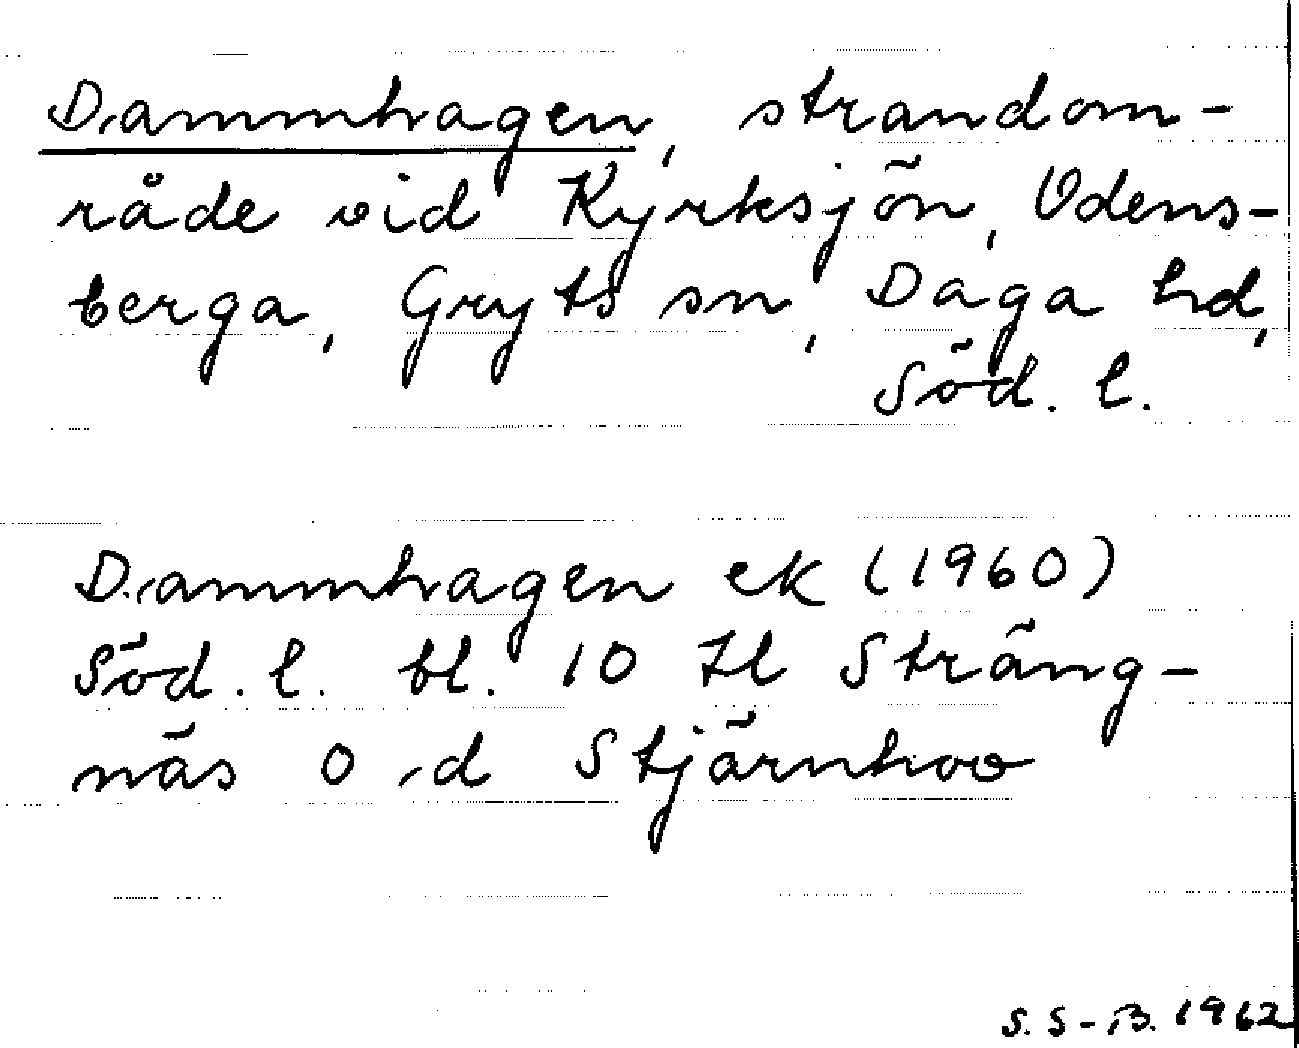 Dammhagen, strandom-
råde vid Kyrksjön, Odens-
berga, Gryts sn, Daga hd,
Söd. l.
Dammhagen ek (1960)
Söd. l. bl. 10 tl Sträng-
näs o d Stjärnhov
S. S-B. 1962